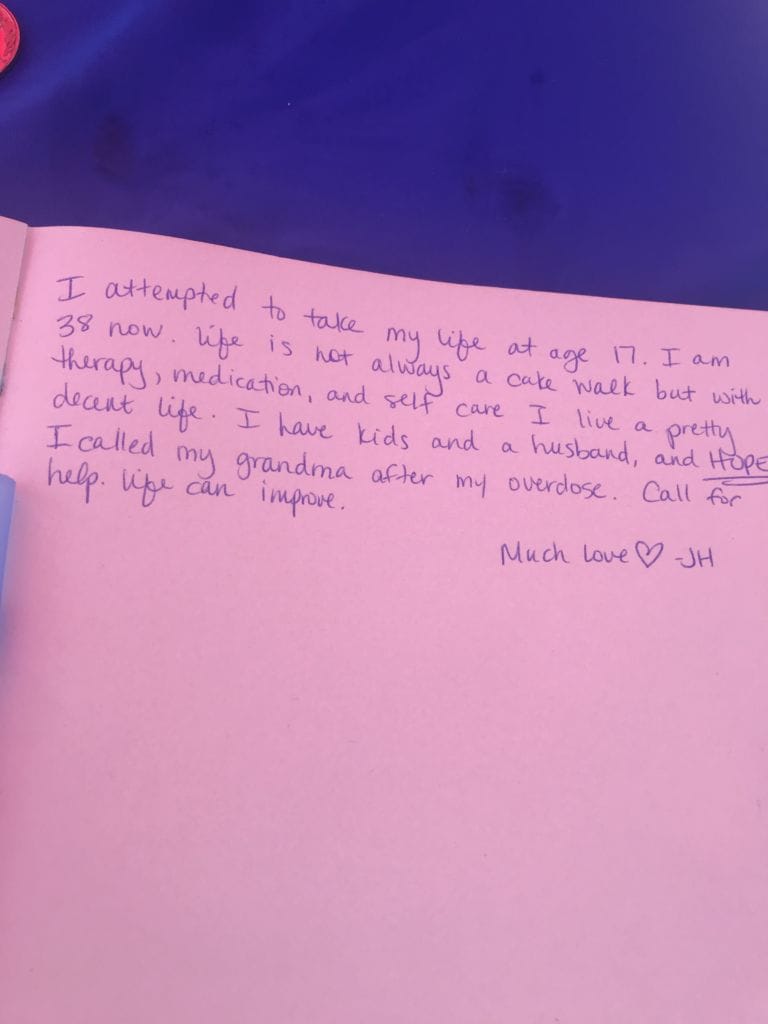 I attempted to take my life at age 17. I am
38 now. Life is not always a cake walk but with
therapy, medication, and self care I live a pretty
decent life. I have kids and a husband, and HOPE
I called my grandma after my overdose. Call for
help. Life can improve.
Much Love ♡ -JH